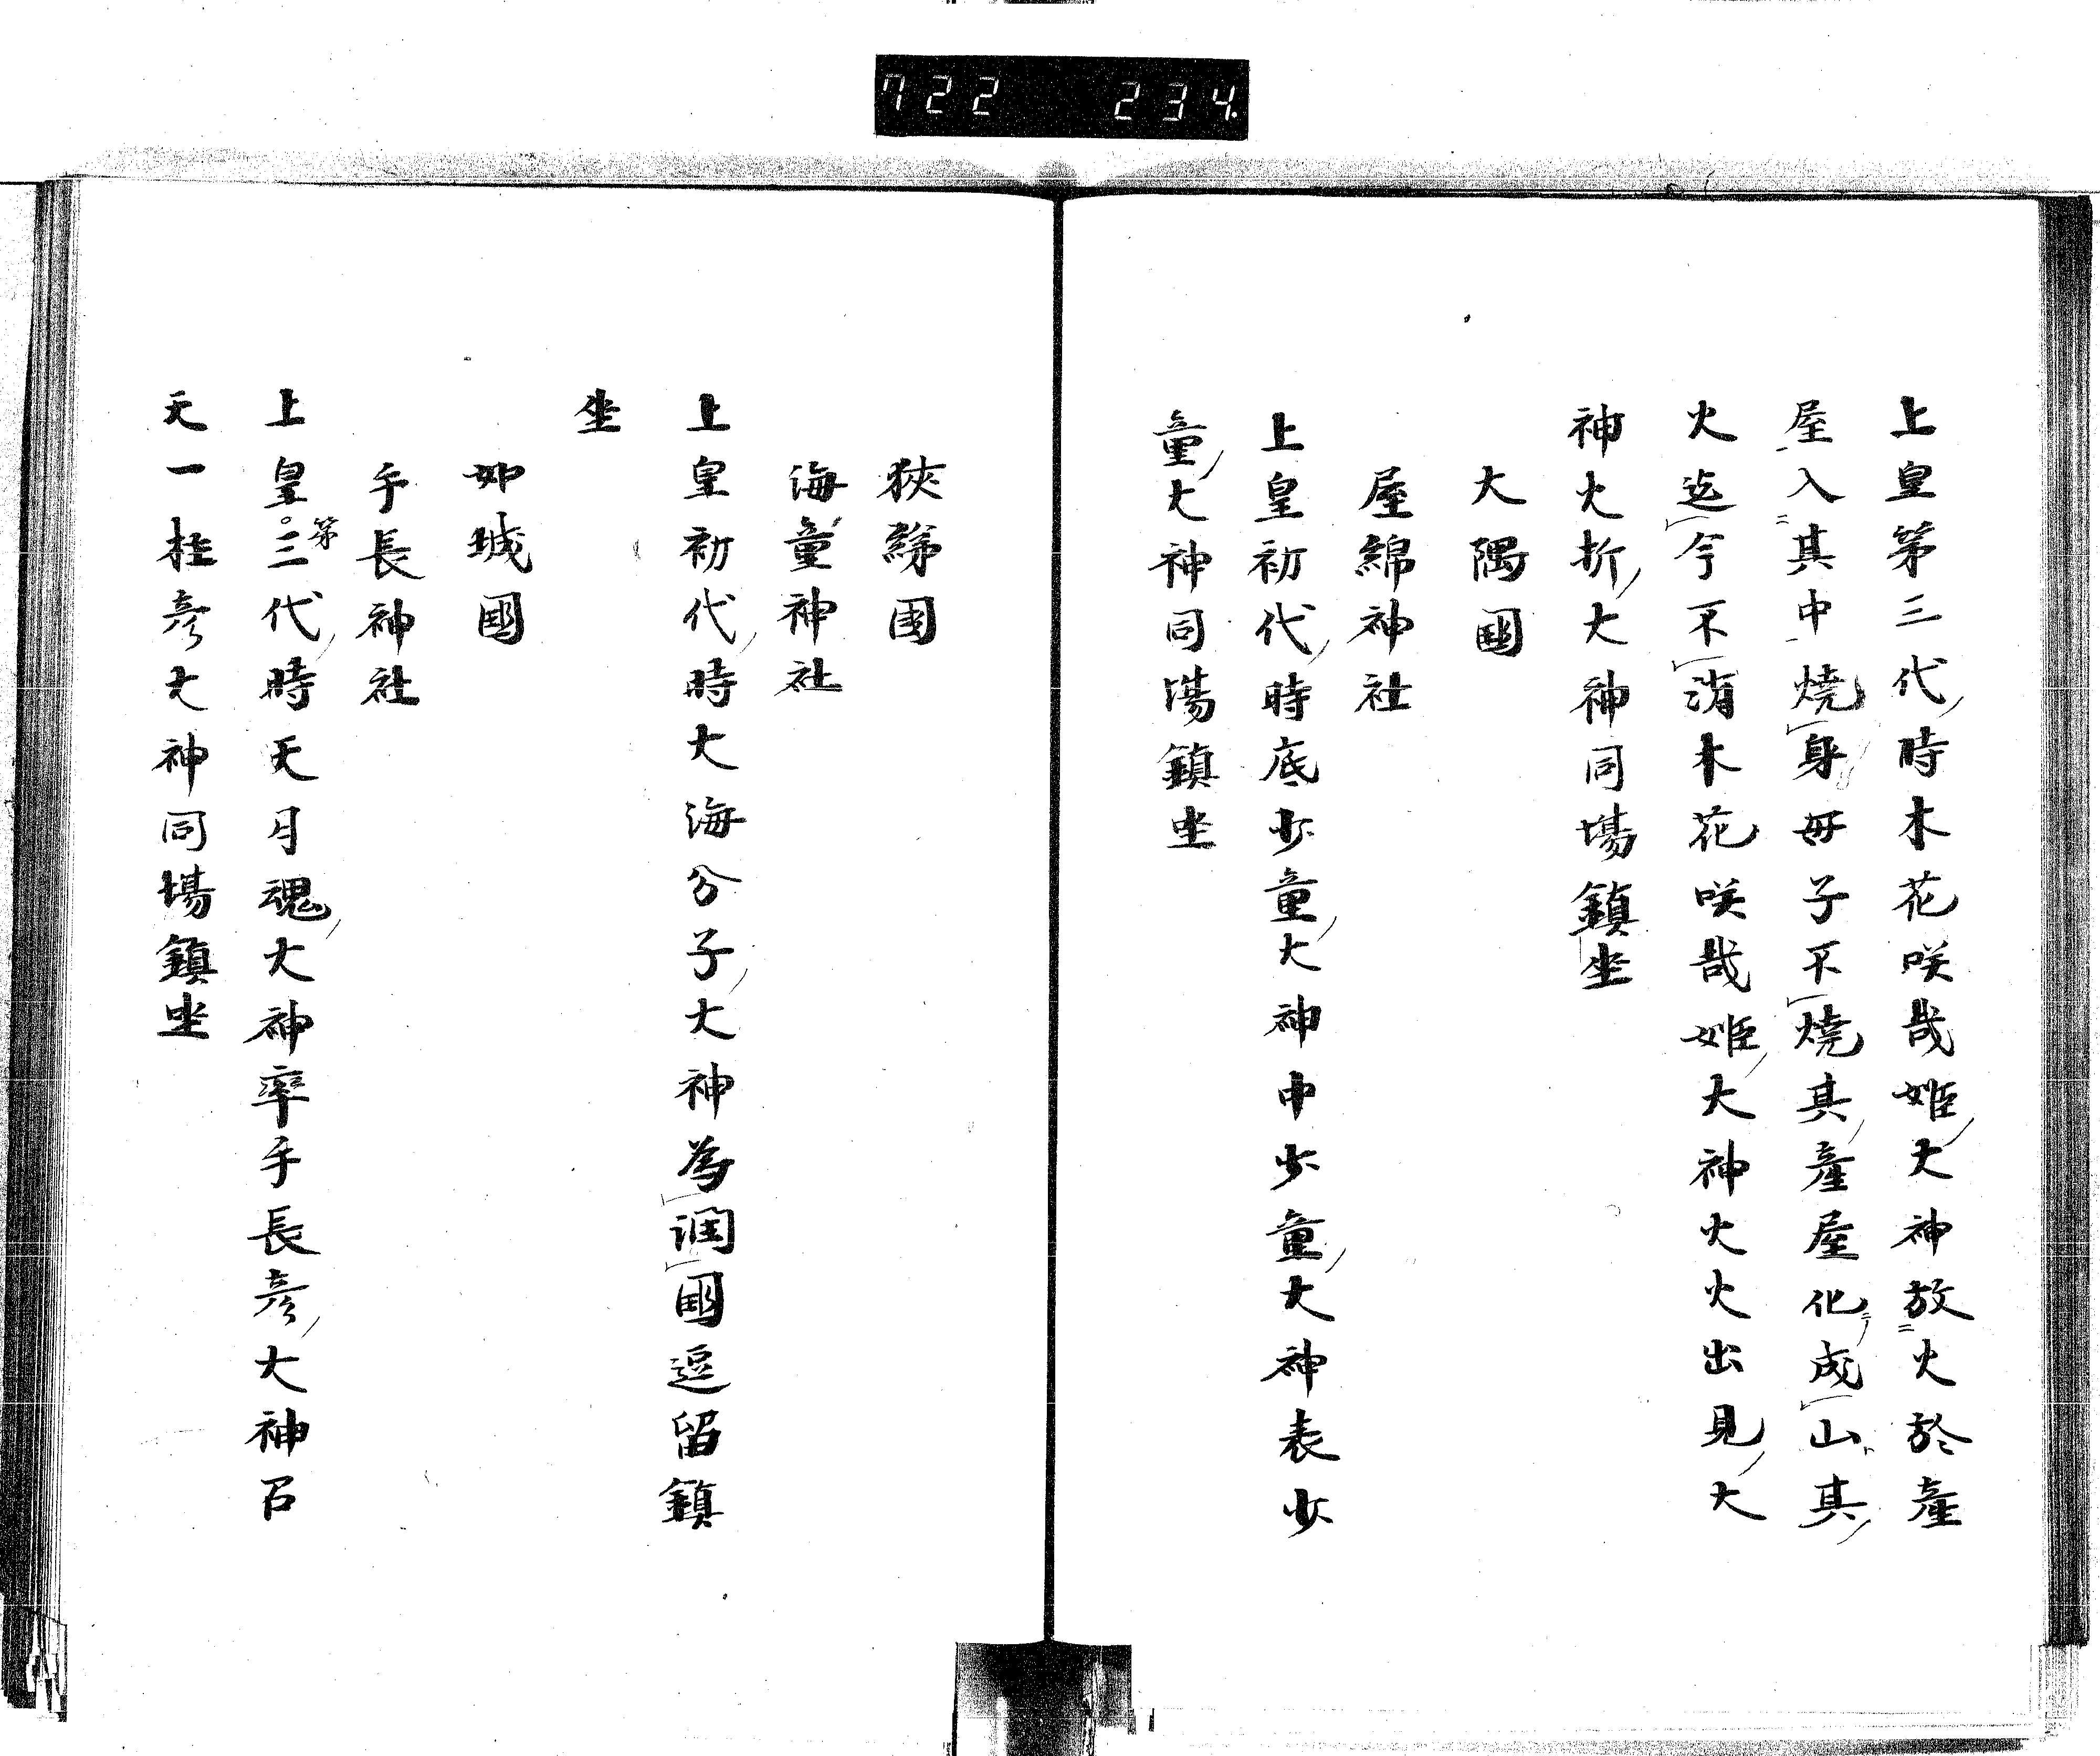 722 234.
上皇第三代時木花咲哉姫大神放火於產
屋入其中燒身毋子不燒其產屋化成山其
火迄今不消木花咲哉姫大神火火出見大
神火折大神同場鎮坐
大隅國
屋綿神社
上皇初代時底少童大神中少童大神表少
童大神同場鎮坐
狹綈国
海童神社
上皇初代時大海分子大神為潤國逗留鎮
坐
城國
手長神社
上皇第三代時天月魂大神率手長彥大神召
天一柱彥大神同場鎮坐